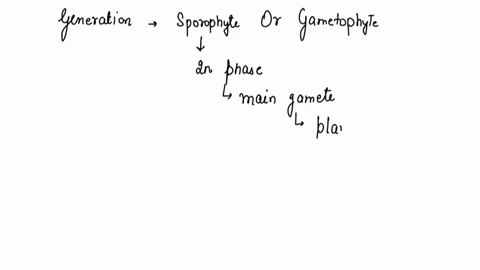 Generation → Sporophyte Or Gametophyte
↓
2n phase
↳ main gamete
↳ pla